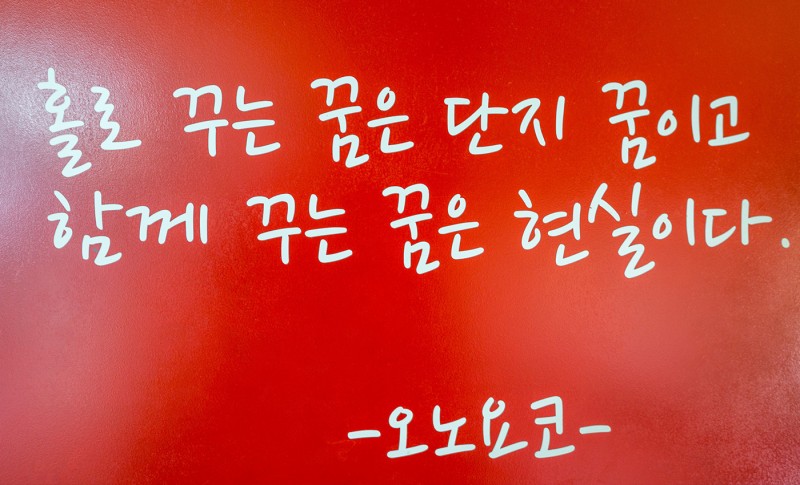 홀로 꾸는 꿈은 단지 꿈이고
함께 꾸는 꿈은 현실이다.
-오노요코-